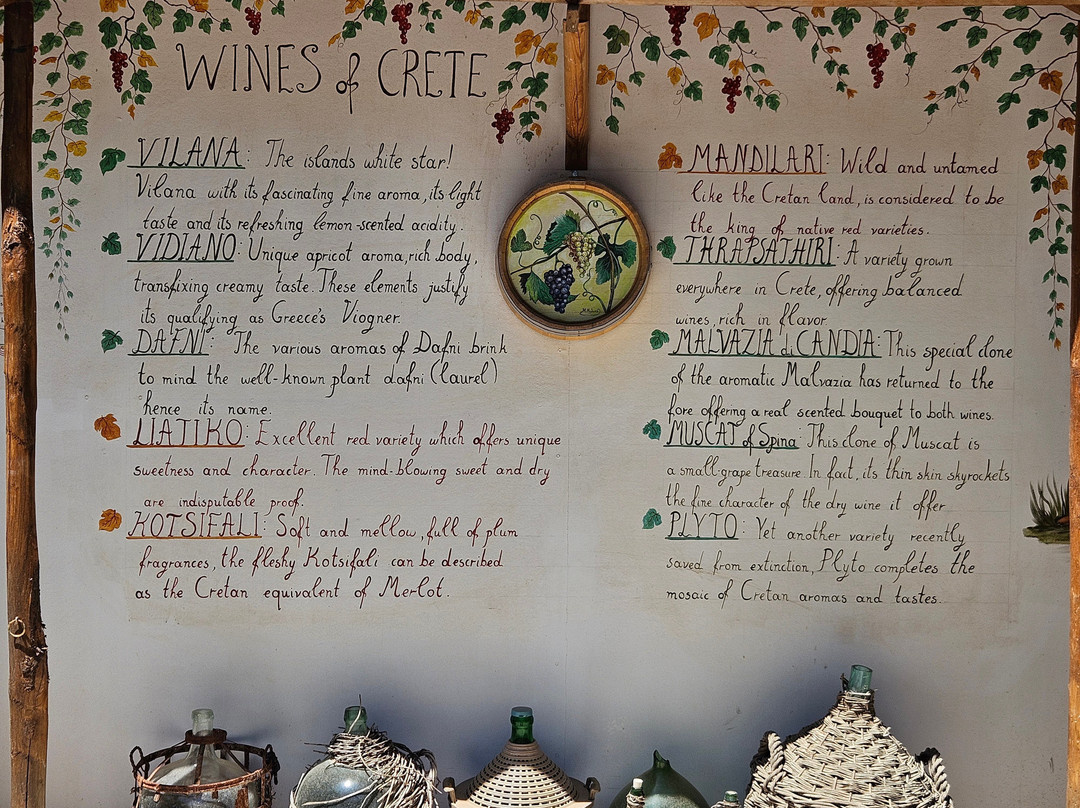 WINES of CRETE
VILANA: The islands white star!
Vilana with its fascinating fine aroma, its light
taste and its refreshing lemon-scented acidity.
VIDIANO: Unique apricot aroma, rich body,
transfixing creamy taste. These elements justify
its qualifying as Greece's Viogner.
DAFNI: The various aromas of Dafni brink
to mind the well-known plant dafni (laurel)
hence its name.
LIATIKO: Excellent red variety which offers unique
sweetness and character. The mind-blowing sweet and dry
are indisputable proof.
KOTSIFALI: Soft and mellow, full of plum
fragrances, the fleshy Kotsifali can be described
as the Cretan equivalent of Merlot.
MANDILARI: Wild and untamed
like the Cretan land, is considered to be
the king of native red varieties.
THRAPSATHIRI: A variety grown
everywhere in Crete, offering balanced
wines, rich in flavor.
MALVAZIA di CANDIA: This special clone
of the aromatic Malvazia has returned to the
fore offering a real scented bouquet to both wines.
MUSCAT of Spina: This clone of Muscat is
a small-grape treasure. In fact, its thin skin skyrockets
the fine character of the dry wine it offer
PLYTO: Yet another variety recently
saved from extinction, Plyto completes the
mosaic of Cretan aromas and tastes.